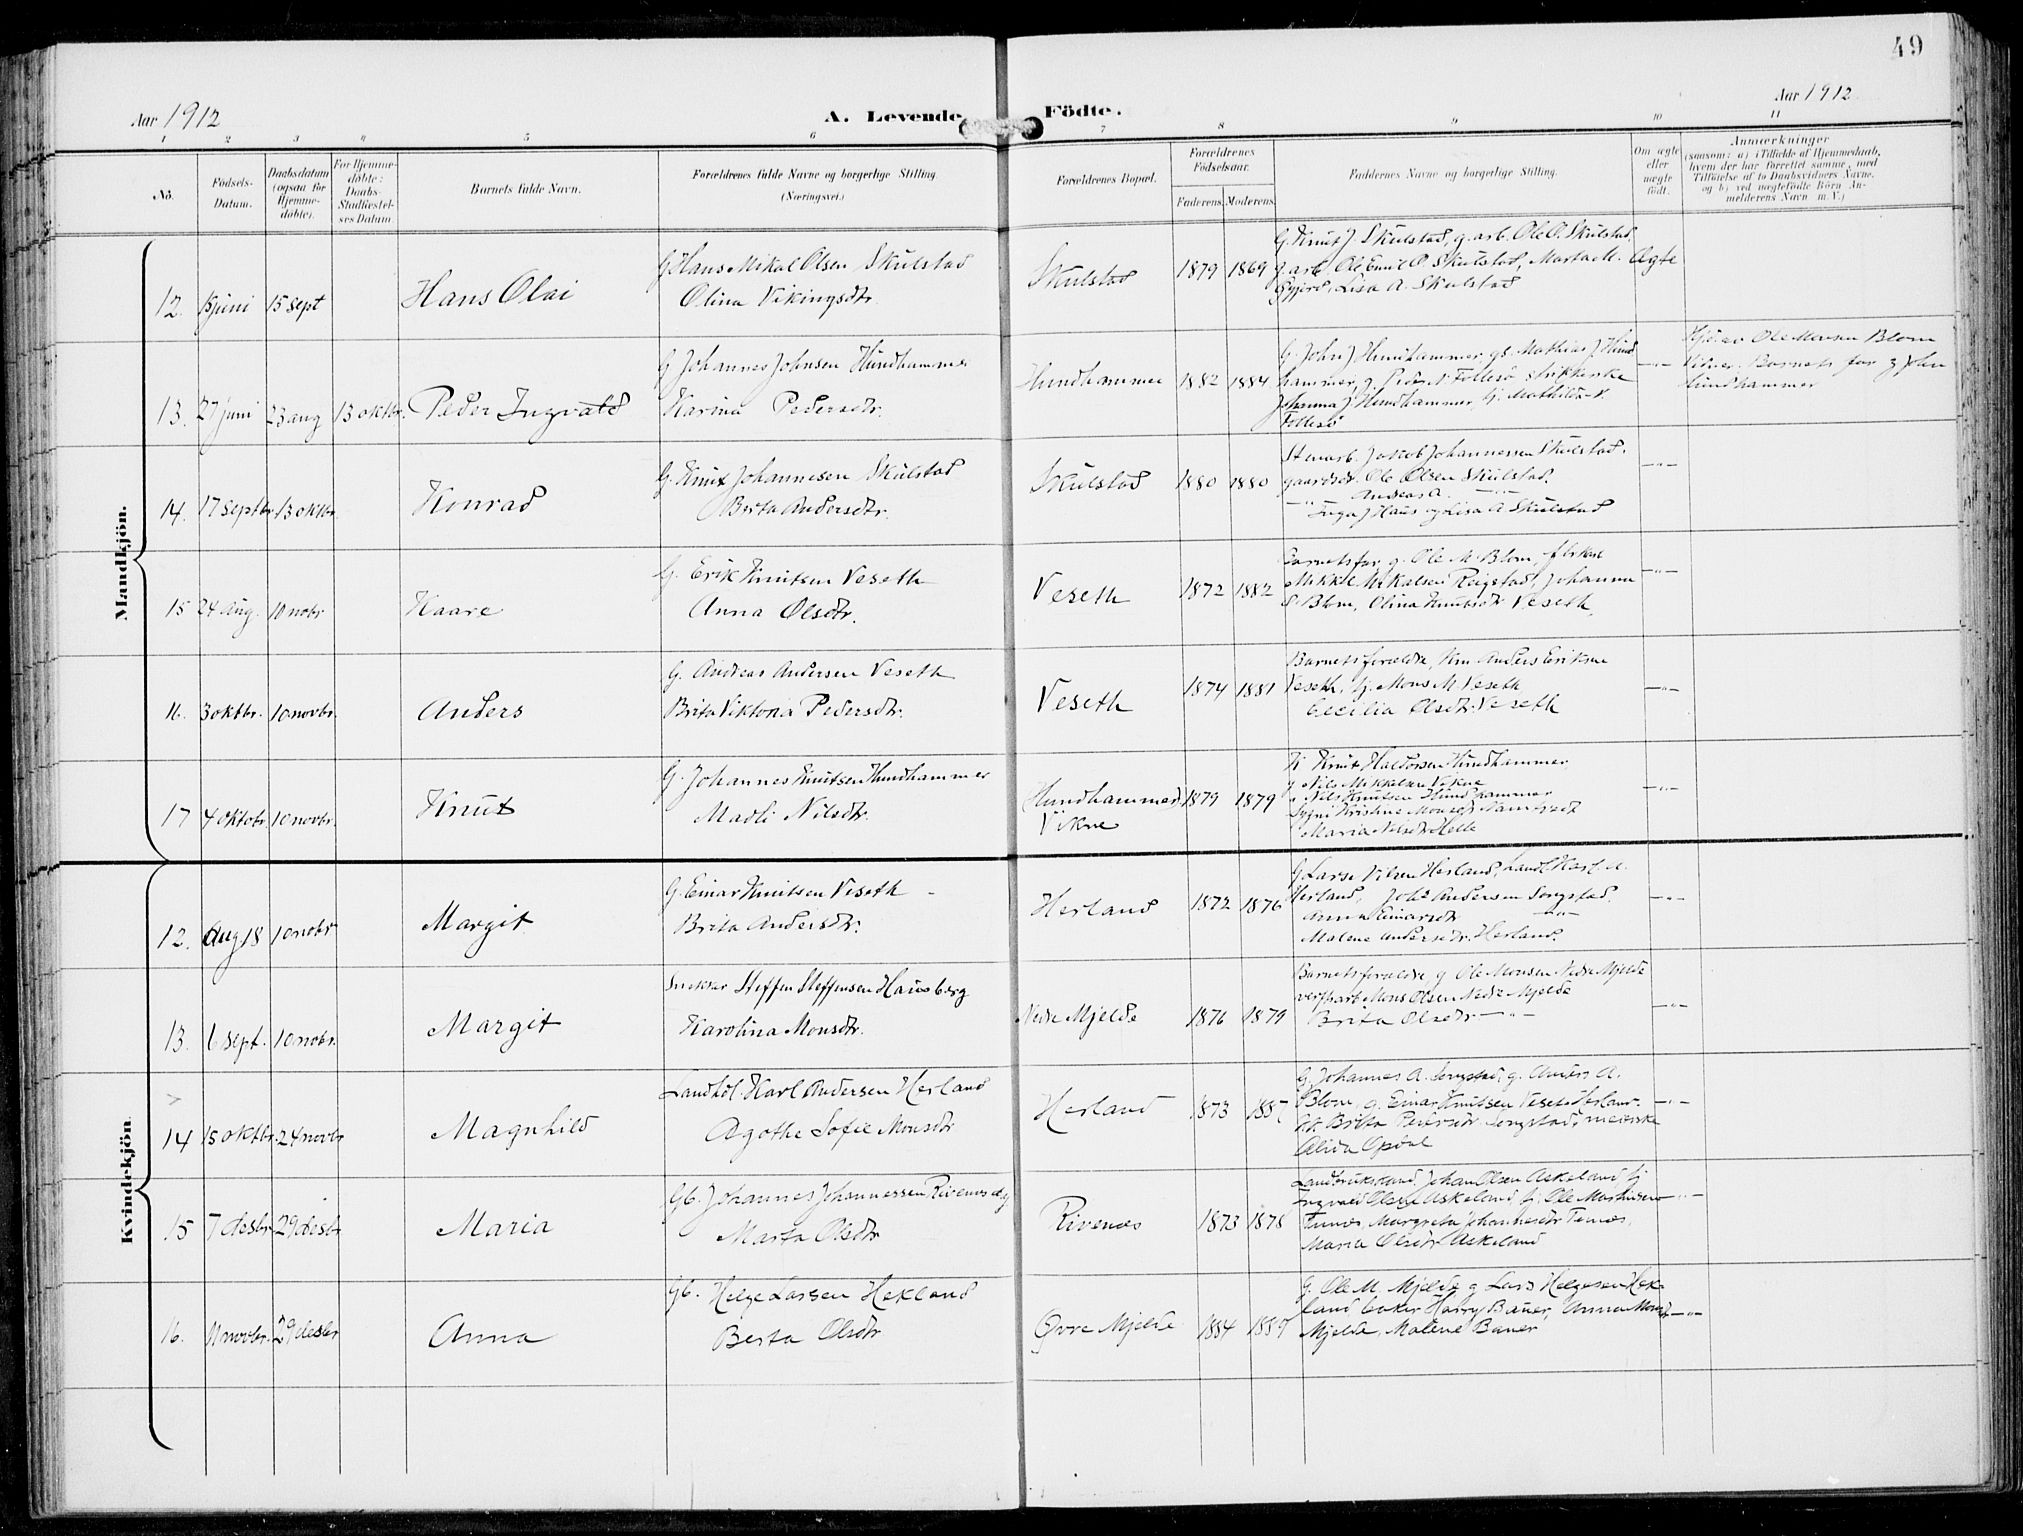 49
Aar 1912
A. Levende Födte.
Aar 1912.
1 2 3 4 5 6 7 8 9 10 11
No.
Födsels-Datum.
Daabsdatum (ogsaa for Hjemme-döbte).
For Hjemme-döbte: Daabs-Stadfæstel-ses Datum.
Barnets fulde Navn.
Forældrenes fulde Navne og borgerlige Stilling.
(Næringsvei.)
Forældrenes Bopæl.
Forældrenes Födselsaar.
Faderens. Moderens.
Faddernes Navne og borgerlige Stilling.
Om ægte eller uægte födt.
Anmærkninger
(saasom: a) i Tilfælde af Hjemmedaab,
hvem der har forrettet samme, med
Tilföielse af to Daabsvidners Navne,
og b) ved uægtefödte Börn An-
melderens Navn m. V.)
Mandkjön.
12. juni 15 sept Hans Olai
G Hans Mikal Olsen Skulstad
Olina Vikingsdtr.
Skulstad 1879 1869
G. Knut J. Skulstad, g. arb. Ole O. Skulstad,
g. arb. Ole Emil O. Skulstad, Marta M.
Gjerd, Lisa A. Skulstad
Ægte
13. 27 juni 23 aug 13 oktbr. Peder Ingvald
G Johannes Johnsen Hundhammer
Karina Pedersdtr.
Hundhammer 1882 1884
G. John J Hundhammer, gs. Mathias J Hund
hammer, g. Peder N. Follesö strikkerske
Johanna J Hundhammer, G. Mathilda N.
Follesö
—"—
Hjd. av Ole Monsen Blom
Vidner: Barnets far g John
Hundhammer
14. 17 septbr. 13 oktbr. Konrad
G. Knut Johannesen Skulstad
Berta Andersdtr.
Skulstad 1880 1880
Stenarb. Jakob Johannessen Skulstad.
gaardsd. Ole Olsen Skulstad.
—"— Andeas A. —"—
Inga J Haus og Lisa A Skulstad
—"—
15 24 aug. 10 nobr Kaare
G. Erik Knutsen Veseth
Anna Olsdtr.
Veseth 1872 1882
Barnets far, g. Ole M. Blom,
Mikkel Mikalsen Reigstad, Johanna
S. Blom, Olina Knutsdtr Veseth,
—"—
16. 3 oktbr. 10 novbr. Anders
G. Andreas Andersen Veseth
Brita Viktoria Pedersdtr.
Veseth 1874 1881
Barnets forældre, Anders Eriksen
Veseth, Mons M. Veseth
Cecilia Olsdtr. Veseth
—"—
17 4 oktobr. 10 novbr. Knut
G. Johannes Knutsen Hundhammer
Madli Nilsdtr.
Hundhammer Vikne 1879 1879
K Knut Haldorsen Hundhammer
g Nils Mikkelsen Vikne
Nils Knutsen Hundhammer
Kristine Monsdtr
Maria Nilsdtr Helle
—"—
Kvindekjön
12. Aug 18 10 nobr Margit
G. Einar Knutsen Veseth
Brita Andersdtr.
Herland 1872 1876
G Lars Nilsen Herland, Landh. Karl A.
Herland, Johs Andersen Songstad.
Anna Einarsdtr —"—
Malene Andersdtr. Herland.
—"—
13. 6 sept. 10 nobr. Margit
Snekker Steffen Steffensen Hausberg
Karolina Monsdtr.
Nedre Mjelde 1876 1879
Barnets forældre g Ole Monsen Nedre Mjelde
Mons Olsen Nedre Mjelde
Brita Olsdtr —"—
—"—
14 15 oktbr. 24 novbr Magnhild
Landhdl. Karl Andersen Herland
Agothe Sofie Monsdtr
Herland 1873 1887
G. Johannes A. Songstad, g. Anders A.
Blom, g. Einar Knutsen Veseth Herland
Brita Pedersdtr Songstad, meierske
Alida Opdal
—"—
15 7 desbr 29 desbr Maria
Gb. Johannes Johannessen Rivenes og
Marta Olsdtr
Rivenæs 1873 1878
Johan Olsen Askeland
Ingvald Olsen Askeland Ole Martinsen
Margreta Johannesdtr
Maria Olsdtr Askeland
—"—
16. 11 novbr. 29 desbr Anna
Gb. Helge Larsen Hekland
Berta Olsdtr
Övre Mjelde 1884 1889
G. Ole M. Mjelde g Lars Helgesen Hek-
land baker Harry Bauer, Anna Monsd
Mjelde, Malene Bauer
—"—